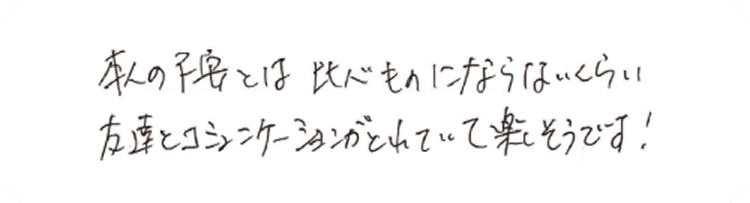 本人の不安とは比べものにならないくらい
友達とコミュニケーションがとれていて楽しそうです！